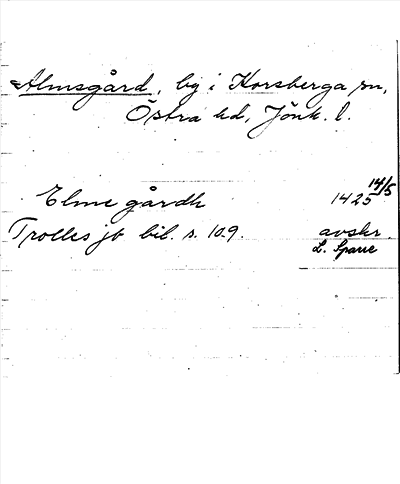 Almsgård, by i Korsberga sn,
Östra hd, Jönk. l.
Elme gårdh 1425 14/5
Trolles jb bil. s. 109. avskr.
L. Sparre